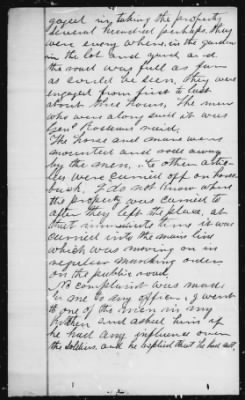 gaged in taking the property
several hundred perhaps. They
were every where in the garden
in the lot and yard and
the road was full as far
as could be seen, they were
engaged from first to last
about three hours, The men
who were along said it was
Genl Rosseaus raid.
The horse and mare were
mounted and rode away
by the men, the other
were carried off on horse
back. I do not know where
the property was carried to
after they left the place, at
that time it was
carried into the main line
which was moving on in
regular marching order
on the public road.
No complaint was made
by me to any officer, I went
to one of the men in my
kitchen and asked him if
he had any influence over
the soldiers. and he replied that he had not.